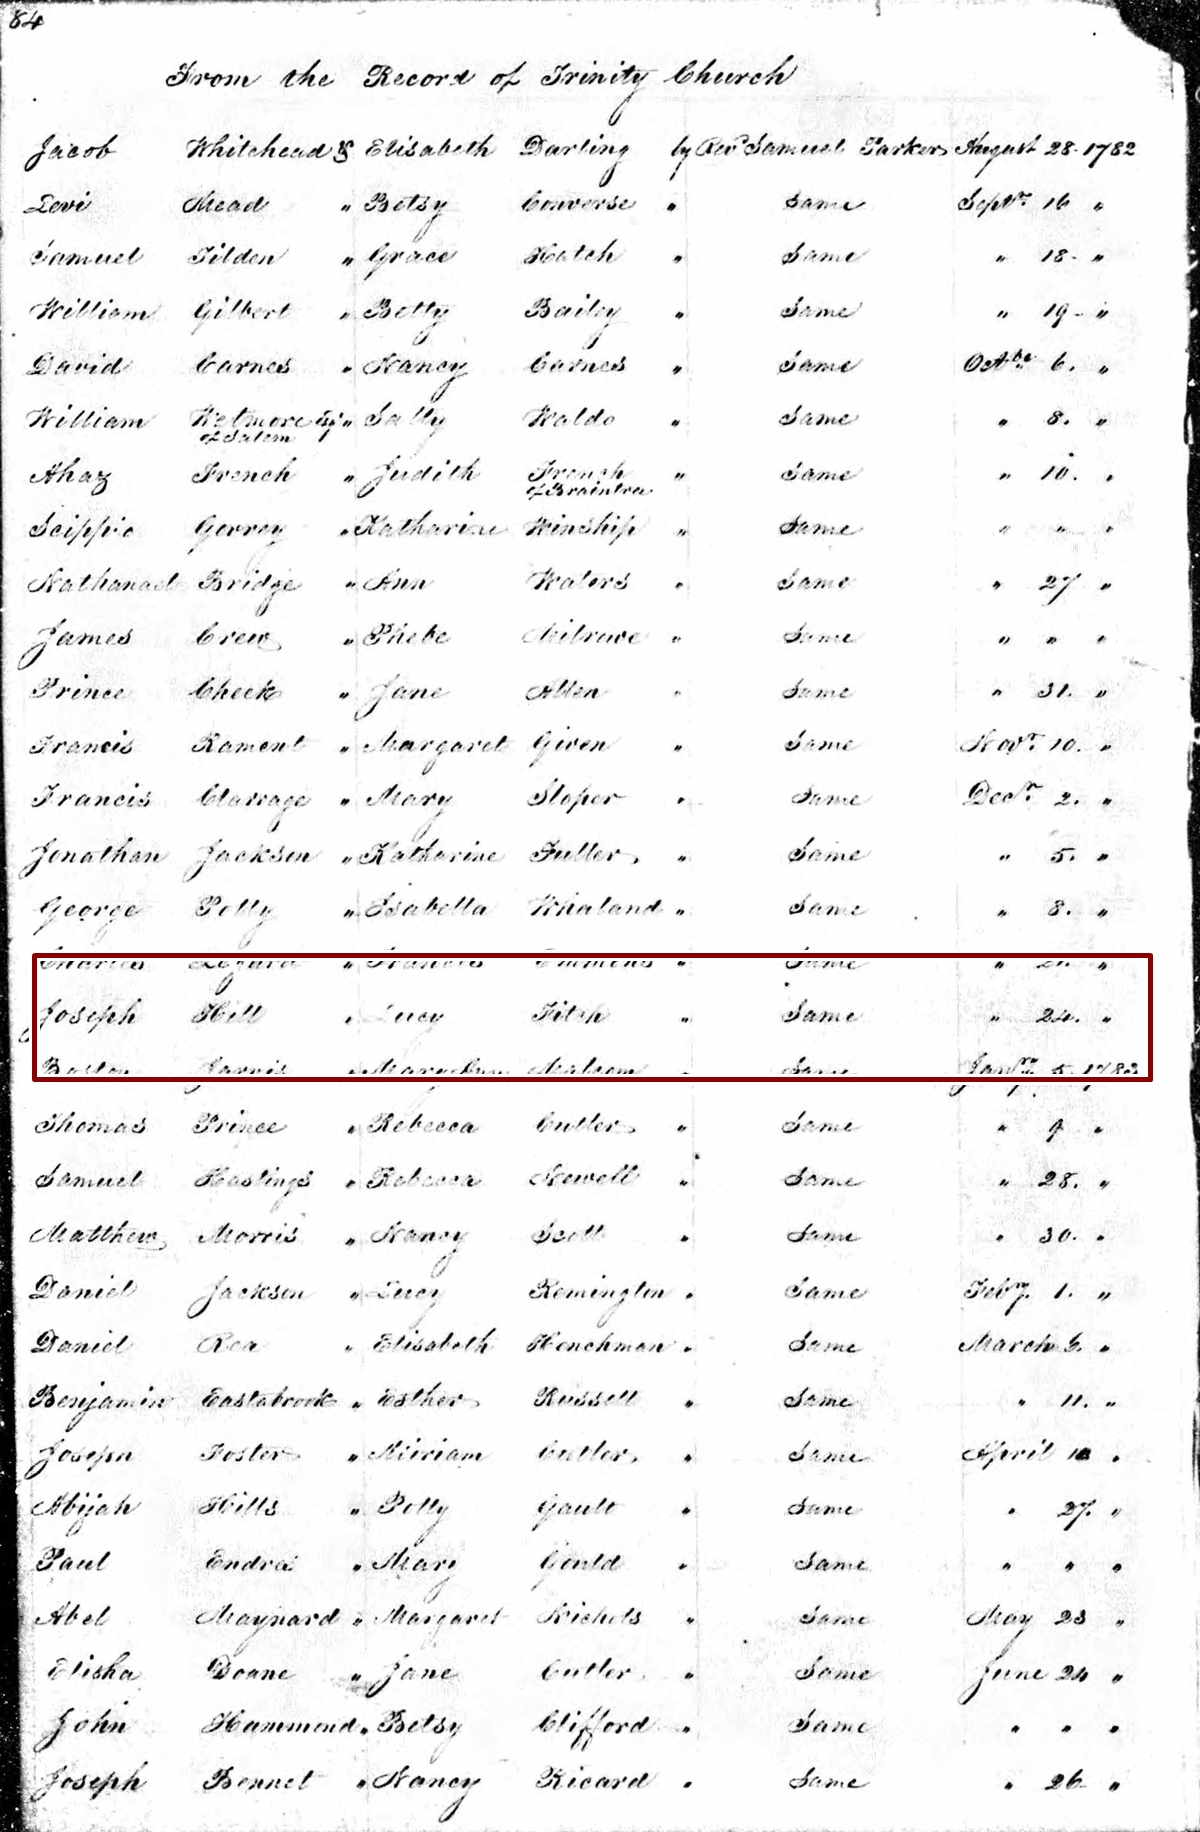 84
From the Record of Trinity Church
Jacob Whitehead & Elisabeth Darling by Revd Samuel Parker August 28 1782
Levi Mead " Betsy Converse " Same Septr 16 "
Samuel Tilden " Grace Hatch " Same " 18 "
William Gilbert " Betty Bailey " Same " 19 "
David Carnes " Nancy Carnes " Same Octbr 6. "
William Wetmore Esqr " Sally Waldo " Same " 8. "
of Salem
Ahaz French " Judith French " Same " 10. "
of Braintree
Scippio Gerrey " Katharine Winship " Same " " "
Nathanael Bridge " Ann Waters " Same " 27 "
James Crew " Phebe " Same " " "
Prince Cheek " Jane Allen " Same " 31. "
Francis Rament " Margaret Given " Same Novr 10. "
Francis Clarrage " Mary Sloper " Same Decr 2. "
Jonathan Jackson " Katharine Fuller " Same " 5. "
George Polly " Isabella Whaland " Same " 8. "
Charles " Frances Emmens " Same " "
Joseph Hill " Lucy Fitch " Same " 24. "
Boston Jarvis " Malcom " Same Jany 5 1783
Thomas Prince " Rebecca Cutler " Same " 9 "
Samuel Hastings " Rebecca Newell " Same " 28. "
Matthew Morris " Nancy Scott " Same " 30. "
Daniel Jackson " Lucy Remington " Same Feby 1. "
Daniel Rea " Elisabeth Henchman " Same March 6. "
Benjamin Eastabrook " Esther Russell " Same " 11. "
Joseph Foster " Miriam Cutler " Same April 10 "
Abijah Hills " Polly Gault " Same " 27. "
Paul " Mary Gould " Same " " "
Abel Maynard " Margaret Nichols " Same May 23 "
Elisha Doane " Jane Cutler " Same June 24 "
John Hammond " Betsy Clifford " Same " " "
Joseph Bennet " Nancy Ricard " Same " 26 "